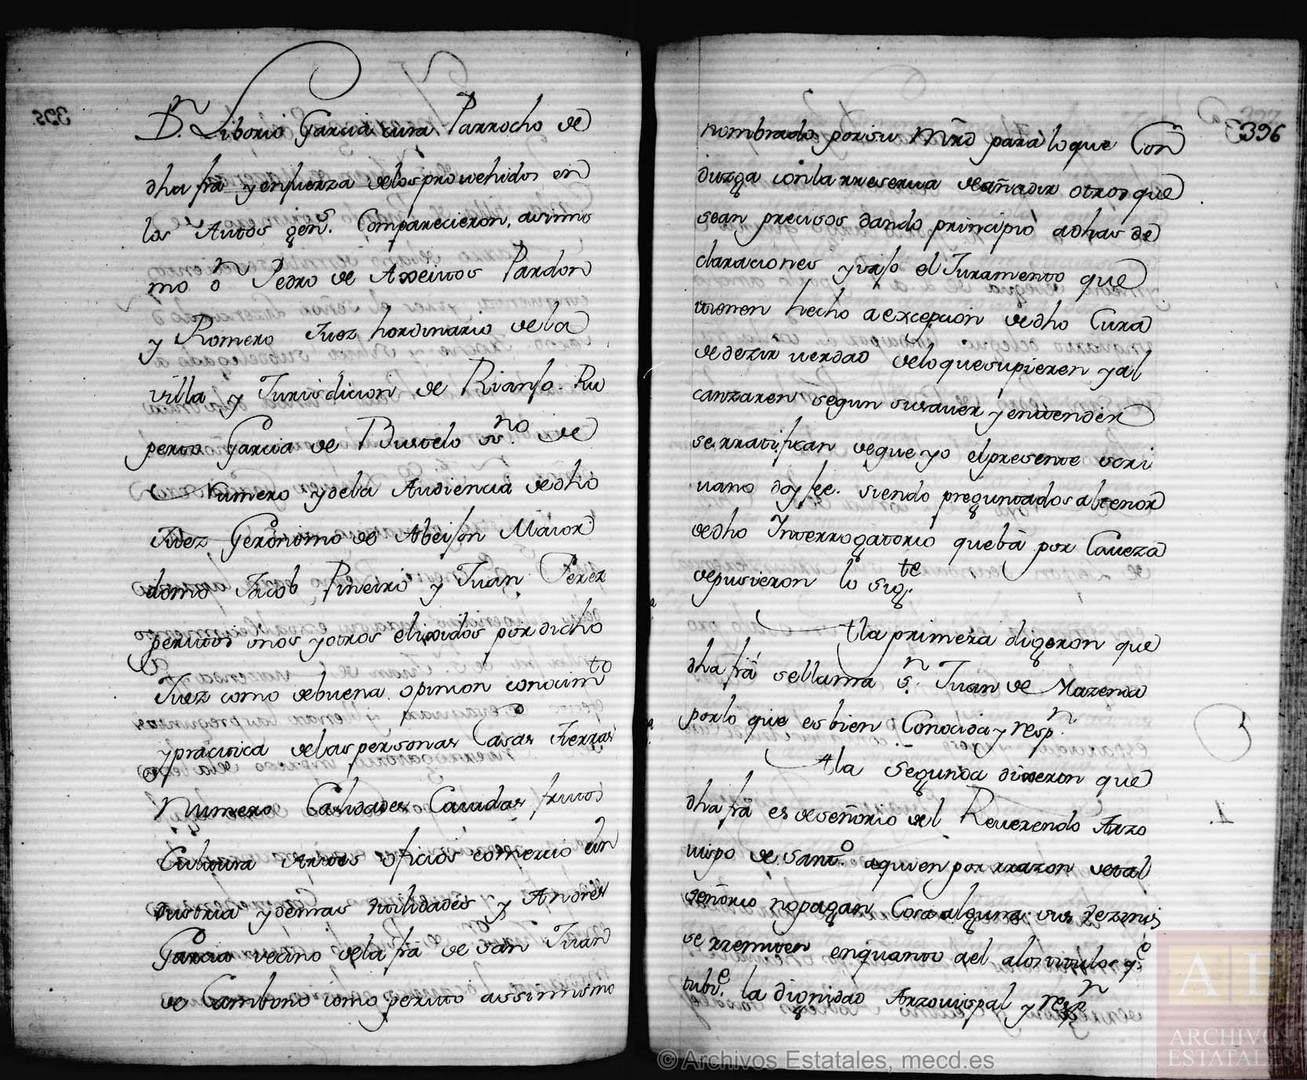 Dn Liborio Garcia cura Parrocho de
dha fra y enfuerza delos prowehidos en
los Autos gens. Comparecieron, asimis
mo Dn Pedro de Axeitos Pardon
y Romero Juez hordinario de la
villa y Jurisdicion de Rianjo. Ru
perto Garcia de Bustelo ssno de
numero ydela Audiencia dedho
Juez Gerónimo de Abeijon Maior
domo Jacob Piñeiro y Juan Perez
peritos unos yotros elixidos por dicho
Juez como debuena opinion conocimto
y practica delas personas Casas tierras
Numero Calidades Cavidas frutos
Cultura Artes oficios comercio Yn
dustria ydemas utilidades y Andres
Garcia vecino dela fra de San Juan
de Camboño como perito assimismo
395
396
nombrado por su Mrd para lo que Con
duzga con la rreserva de añadir otros que
sean precisos dando principio adhas de
claraciones y vajo el Juramento que
tienen hecho a excepcion dedho Cura
de dezir verdad delo que supieren y al
canzaren segun su saver y entender
se rratifican de que yo el presente scri
uano doy fee. siendo preguntados al tenor
dedho Interrogatorio que bá por Caveza
depusieron lo sigte
Ala primera dijeron que
dha fra se llama Sn. Juan de Mazenda
por lo que es bien Conocida y respn.
1
Ala Segunda dixeron que
dha fra es de señorio del Reverendo Arzo
vispo de Santo. aquien por rrazon de tal
señorio no pagan Cosa alguna
se rremiten enquanto ael alos titulos qe
tubre. la dignidad Arzovispal y respn
© Archivos Estatales, mecd.es
AE
ARCHIVOS
ESTATALES